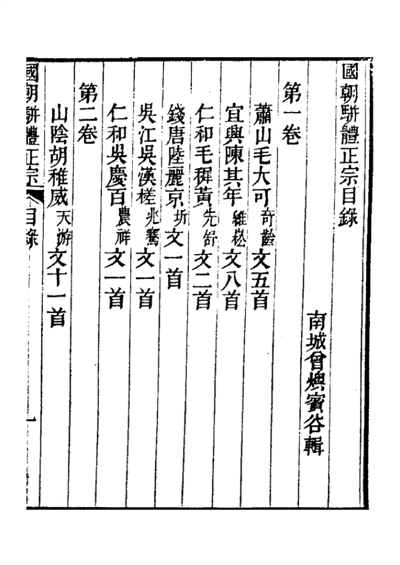 國朝駢體正宗目錄
南城曾燠賓谷輯
第一卷
蕭山毛大可奇齡文五首
宜興陳其年維崧文八首
仁和毛稺黃先舒文二首
錢唐陸麗京圻文一首
吳江吳漢槎兆騫文一首
仁和吳慶百農祥文一首
第二卷
山陰胡稚威天游文十一首
國朝駢體正宗 目錄 一